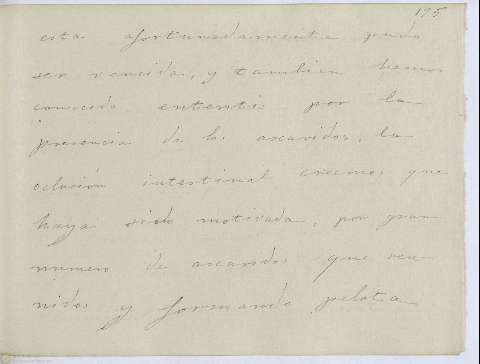 195
esta afortunadamente pudo
ser vencida, y tambien hemos
conocido por la
presencia de los ascarides, la
oclusión intestinal creemos que
haya sido motivada, por gran
numero de ascarides que reu-
nidos y formando pelota